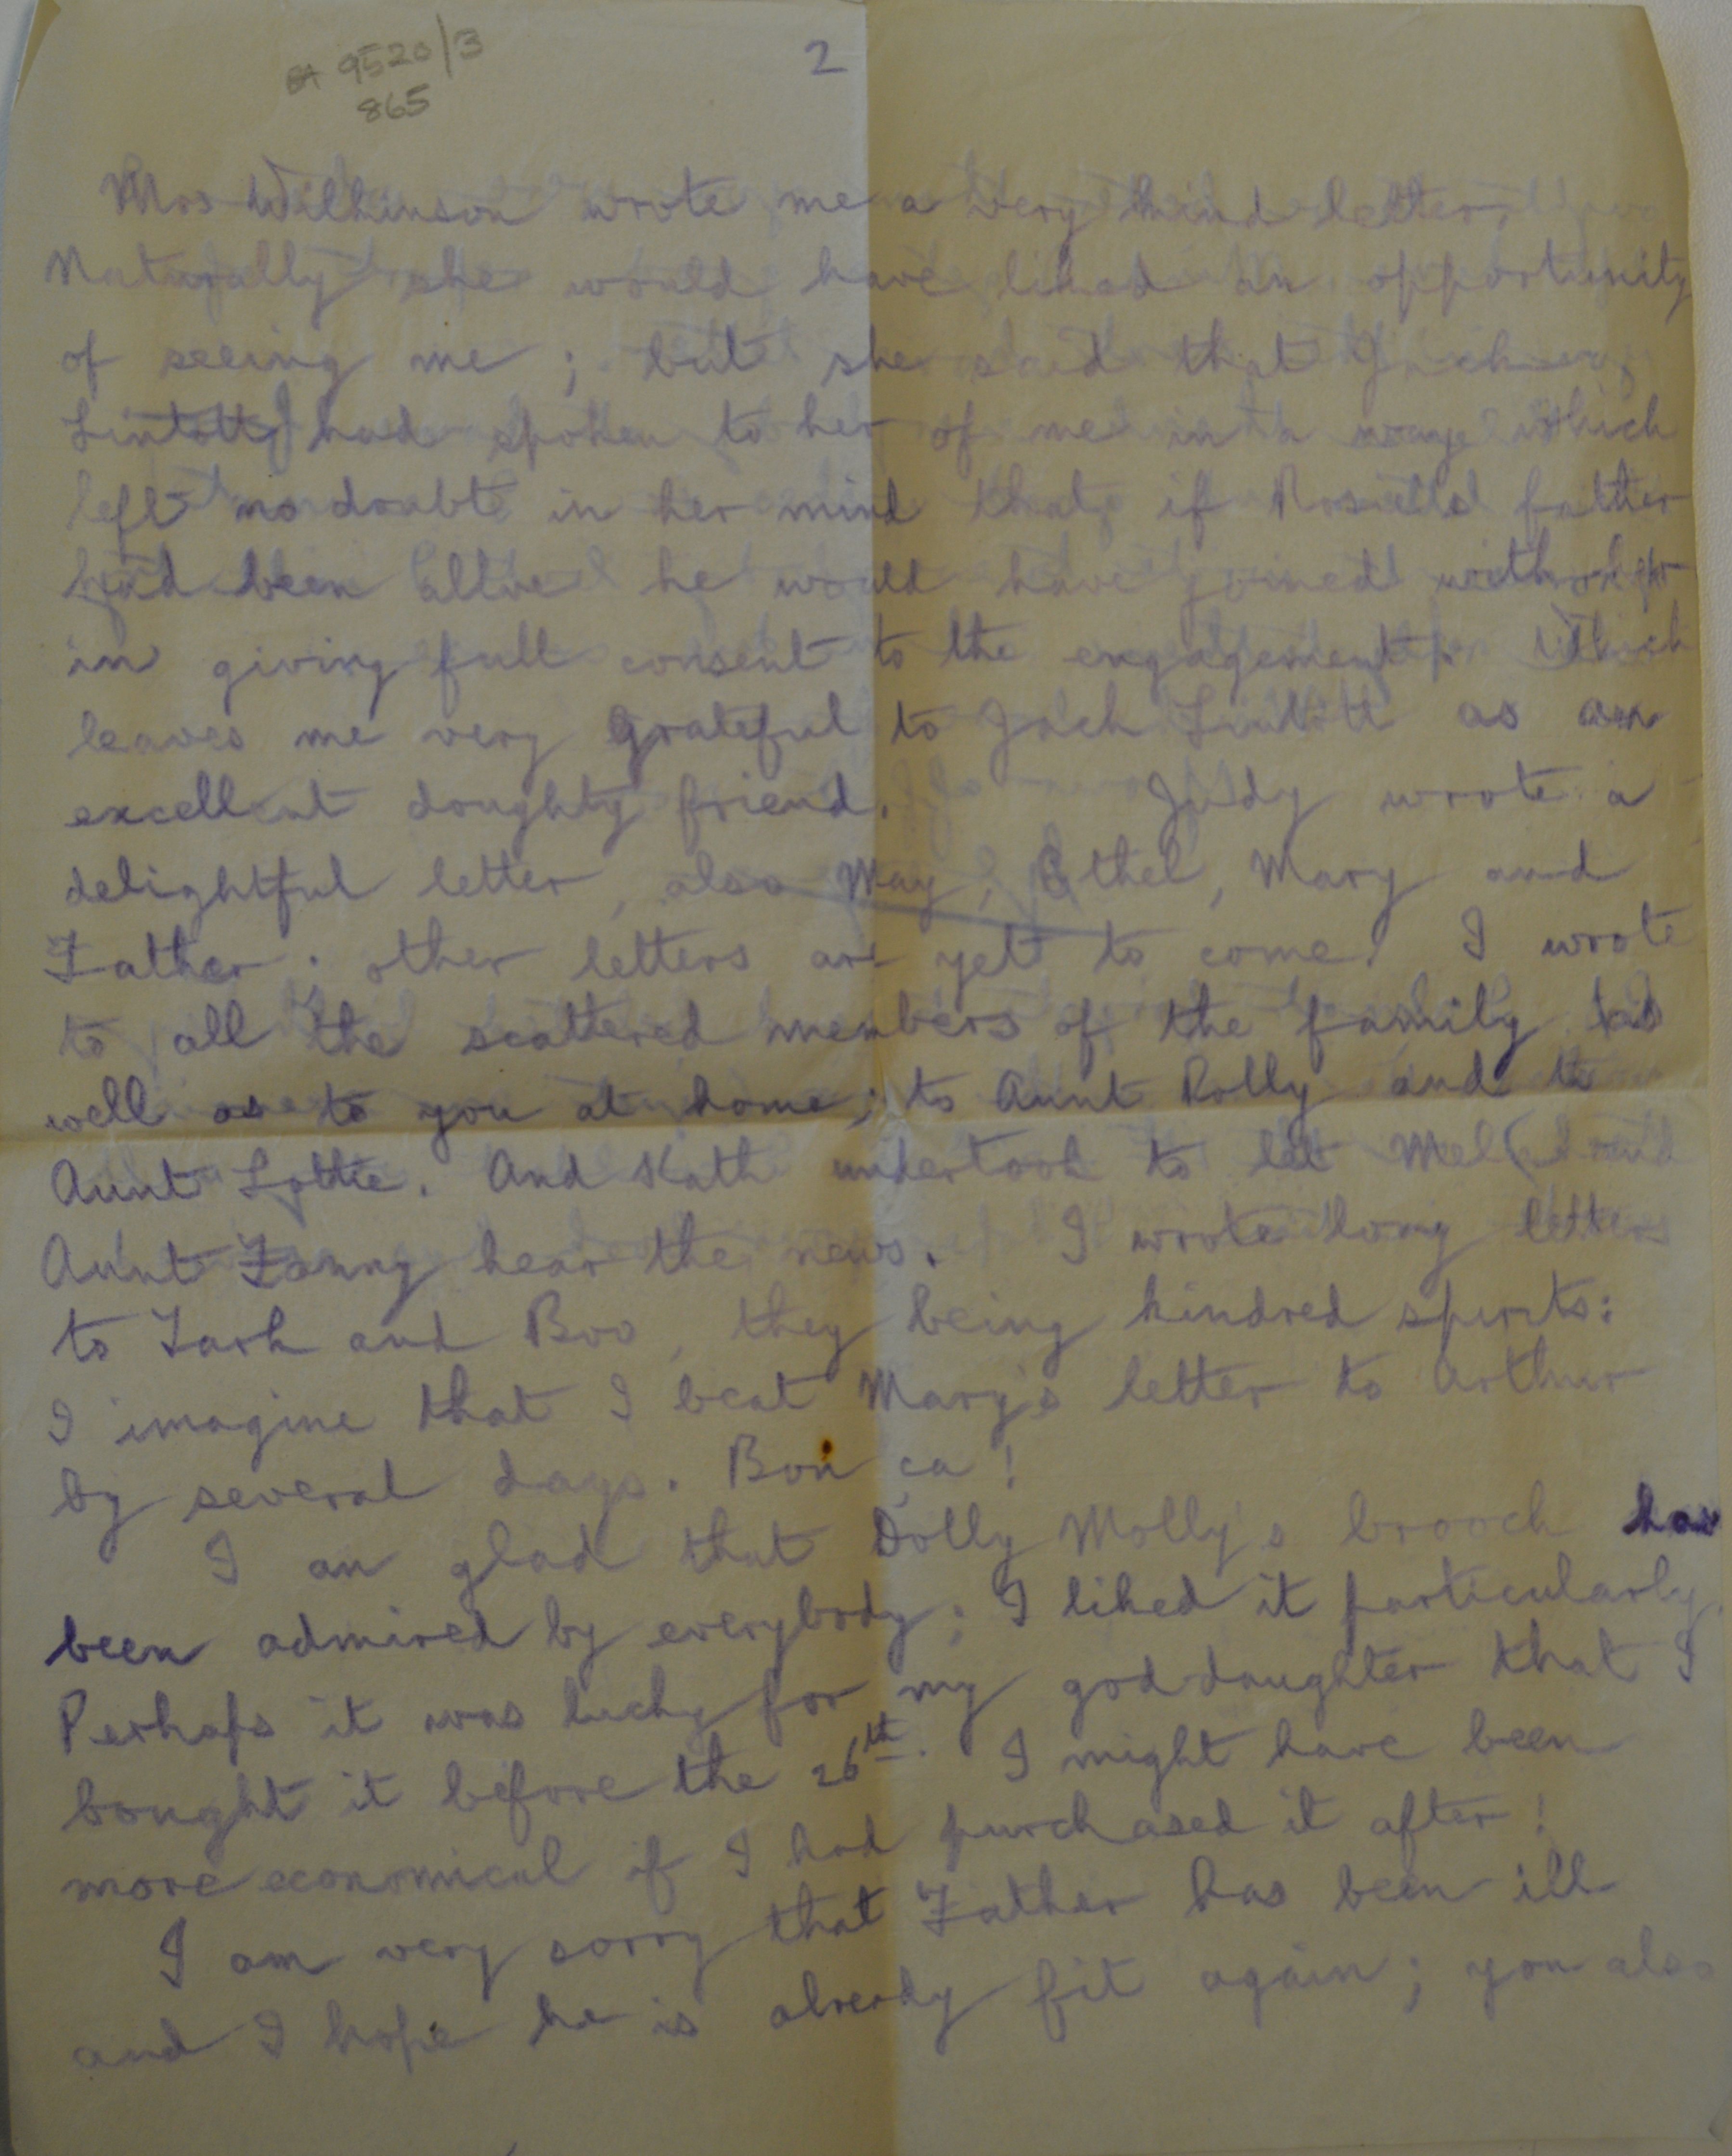 9520/3
865
2
Mrs Wilkinson wrote me a very kind letter.
Naturally she would have liked an opportunity
of seeing me; but she said that Jack
Lintott had spoken to her of me in a way which
left no doubt in her mind that if father
had been alive he would have joined with her
in giving full consent to the engagement. Which
leaves me very grateful to Jack Lintott as an
excellent doughty friend. Judy wrote a
delightful letter, also May, Ethel, Mary and
Father; other letters are yet to come. I wrote
to all the scattered members of the family as
well as to you at home; to Aunt Polly and to
Aunt Lottie. And Kath undertook to let Mel and
Aunt Fanny hear the news. I wrote long letters
to Tark and Boo, they being kindred spirits:
I imagine that I beat Mary's letter to Arthur
by several days. Bon ça!
I am glad that Dolly Molly's brooch has
been admired by everybody; I liked it particularly.
Perhaps it was lucky for my goddaughter that I
bought it before the 26th. I might have been
more economical if I had purchased it after!
I am very sorry that Father has been ill
and I hope he is already fit again; you also